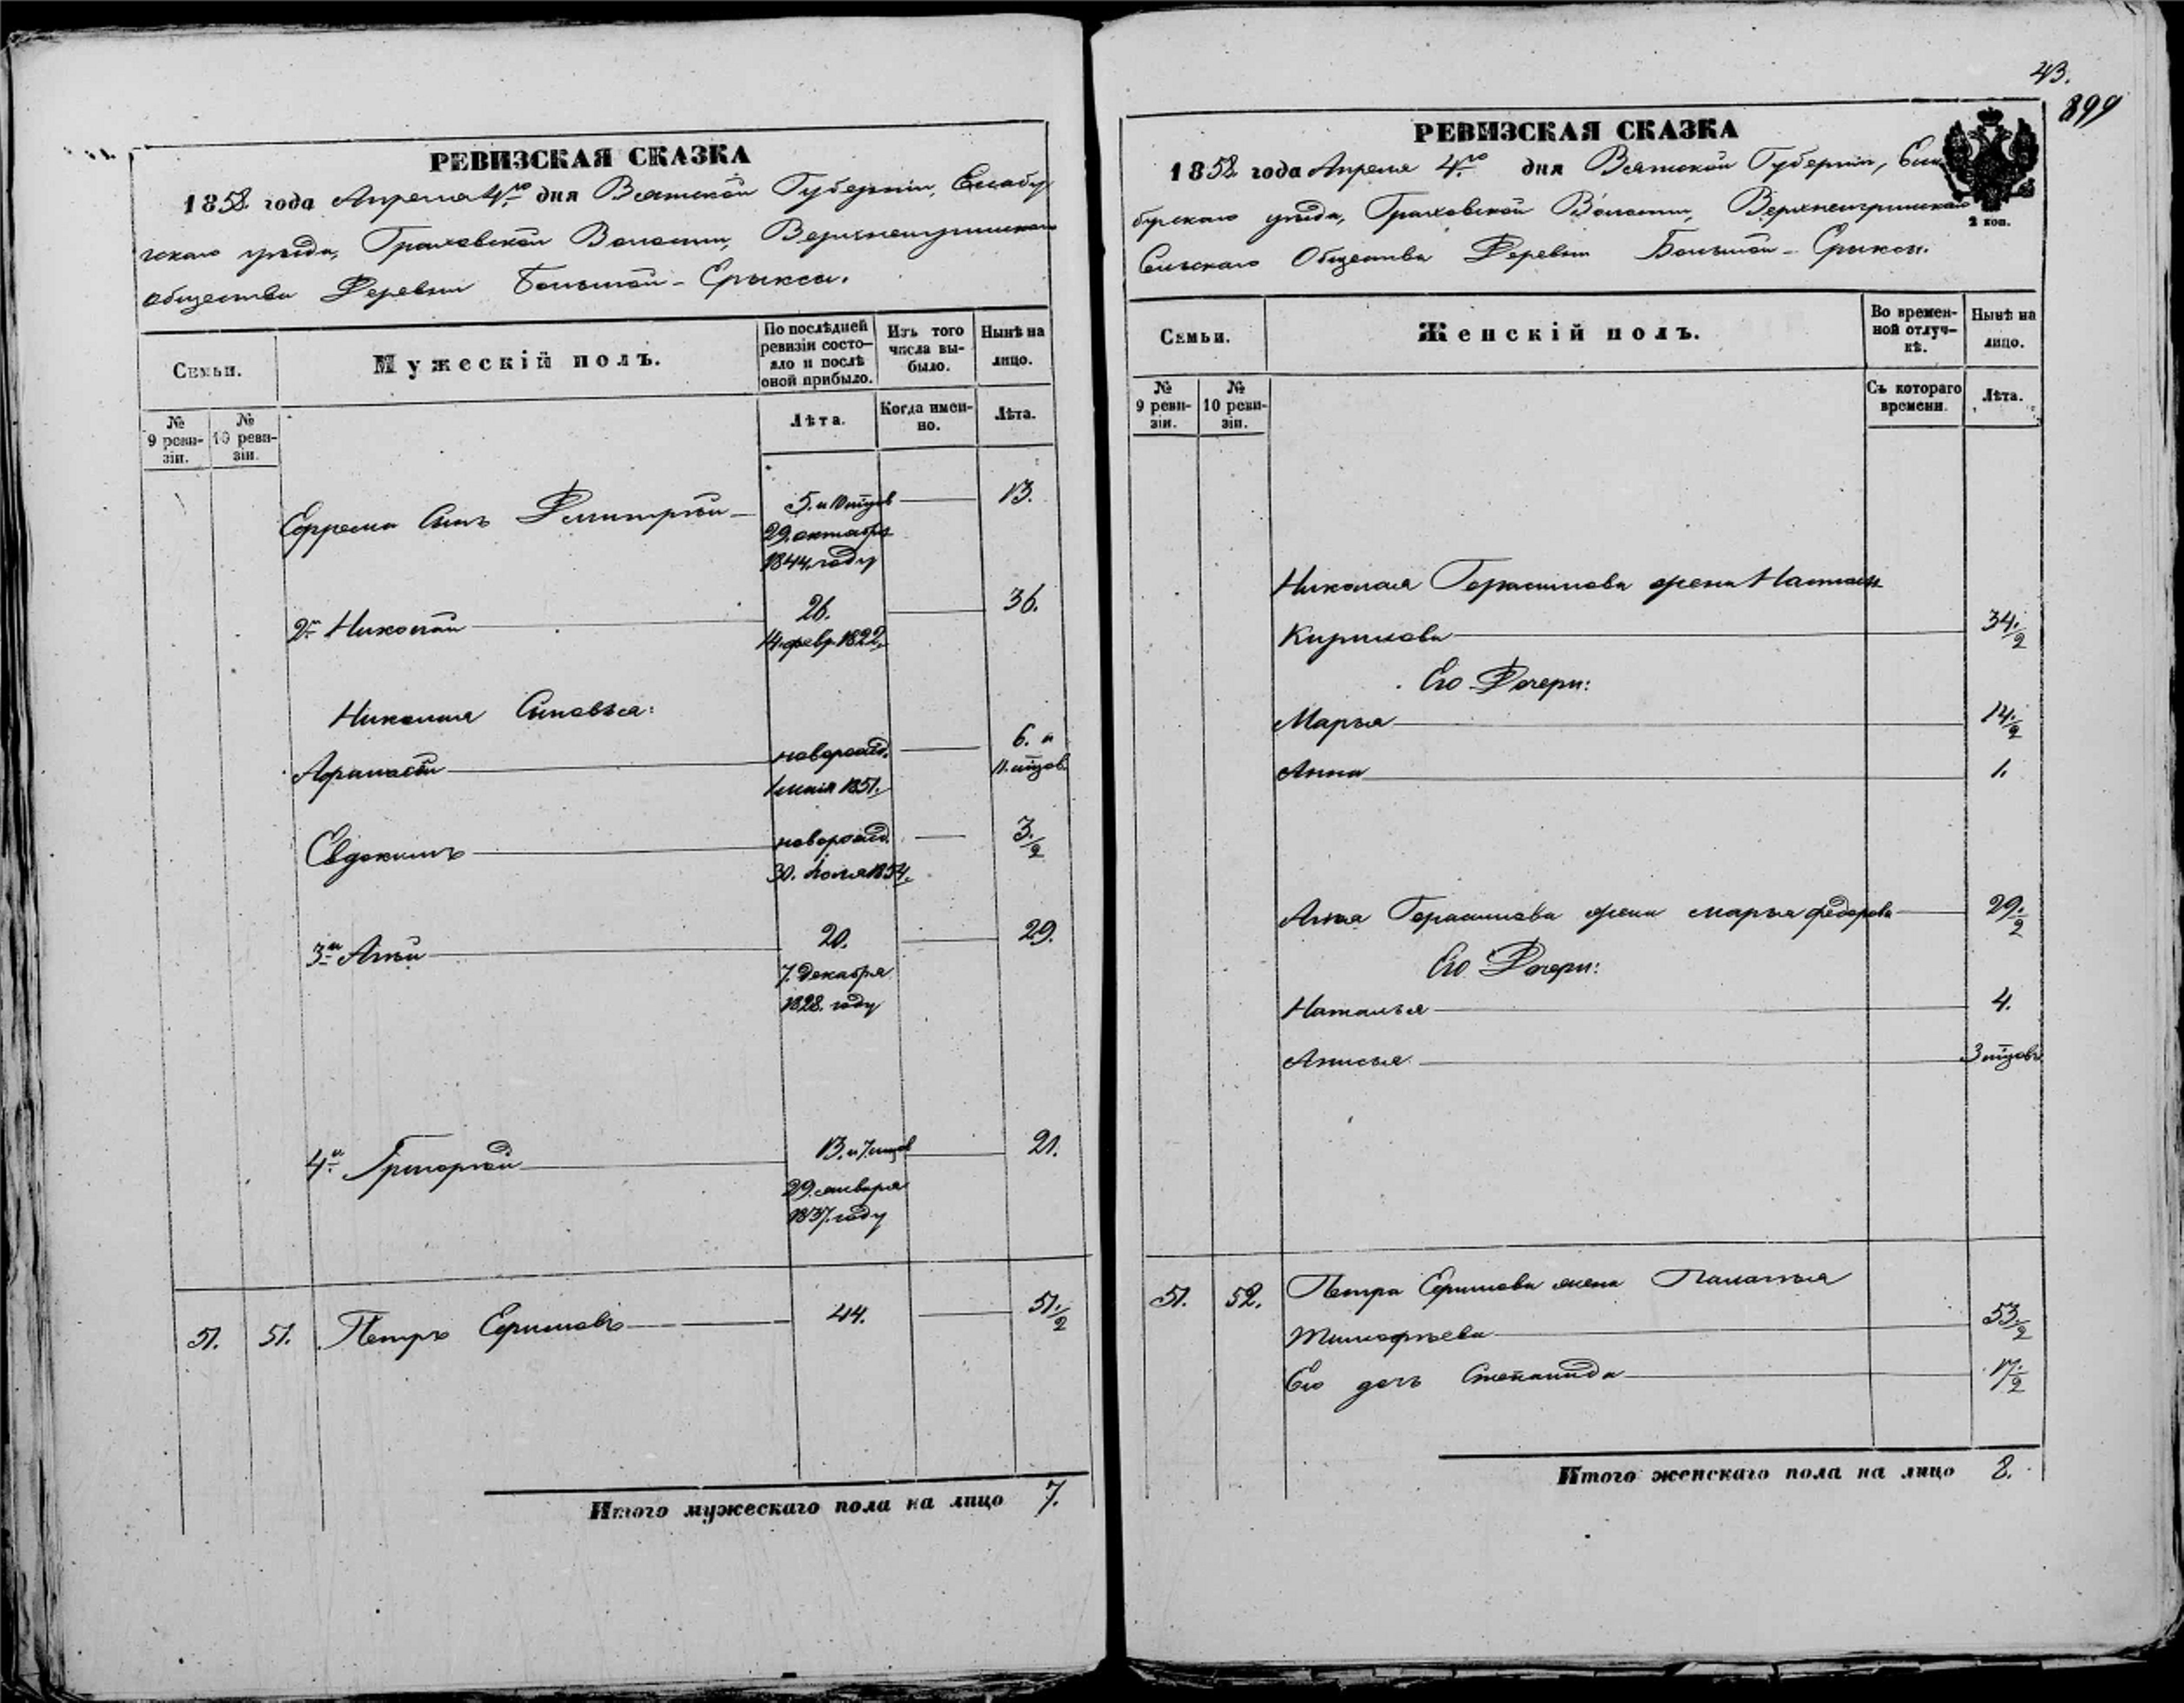 РЕВИЗСКАЯ СКАЗКА
1858 года Апреля 4го дня Вятской Губерніи, Елабу
гскаго уѣзда, Граховской Волости,
общества Деревни Большой - Ерыксы.
Семьи.
Мужескій полъ.
По послѣдней ревизіи состояло и послѣ оной прибыло.
Изъ того числа выбыло.
Нынѣ на лицо.
№ 9 ревизіи.
№ 10 ревизіи.
Лѣта.
Когда именно.
Лѣта.
Ефрема Сынъ Дмитрій 5. и 10 мцов 13.
29. октября
1844. году
2й Николай 26. 36.
14. февр. 1822.
Николая Сыновья:
Афанасій новорожд. 6. и
1 мая 1851. 11. мцов.
Евдокимъ новорожд. 3./2
30. Іюля 1854.
3й 20. 29.
7. Декабря
1828. году
4й Григорій 13. и 7. мцов 21.
29. января
1837. году
51. 51. Петръ Ефимовъ 44. 51./2
Итого мужескаго пола на лицо 7.
43.
899
РЕВИЗСКАЯ СКАЗКА
1858 года Апреля 4го дня Вятской Губерніи, Ела
бугскаго уѣзда, Граховской Волости,
2 коп.
Сельскаго Общества Деревни Большой - Ерыксы.
Семьи.
Женскій полъ.
Во временной отлучкѣ.
Нынѣ на лицо.
№ 9 ревизіи.
№ 10 ревизіи.
Съ котораго времени.
Лѣта.
Николая Герасимова жена
Кирилова 34./2
Его Дочери:
Марья 14./2
Анна 1.
Герасимова жена марья федорова 29./2
Его Дочери:
Наталья 4.
Анисья 3 мцовъ
51. 52. Петра Ефимова жена Палагья
Тимофѣева 53./2
Его дочь Степанида 17./2
Итого женскаго пола на лицо 8.